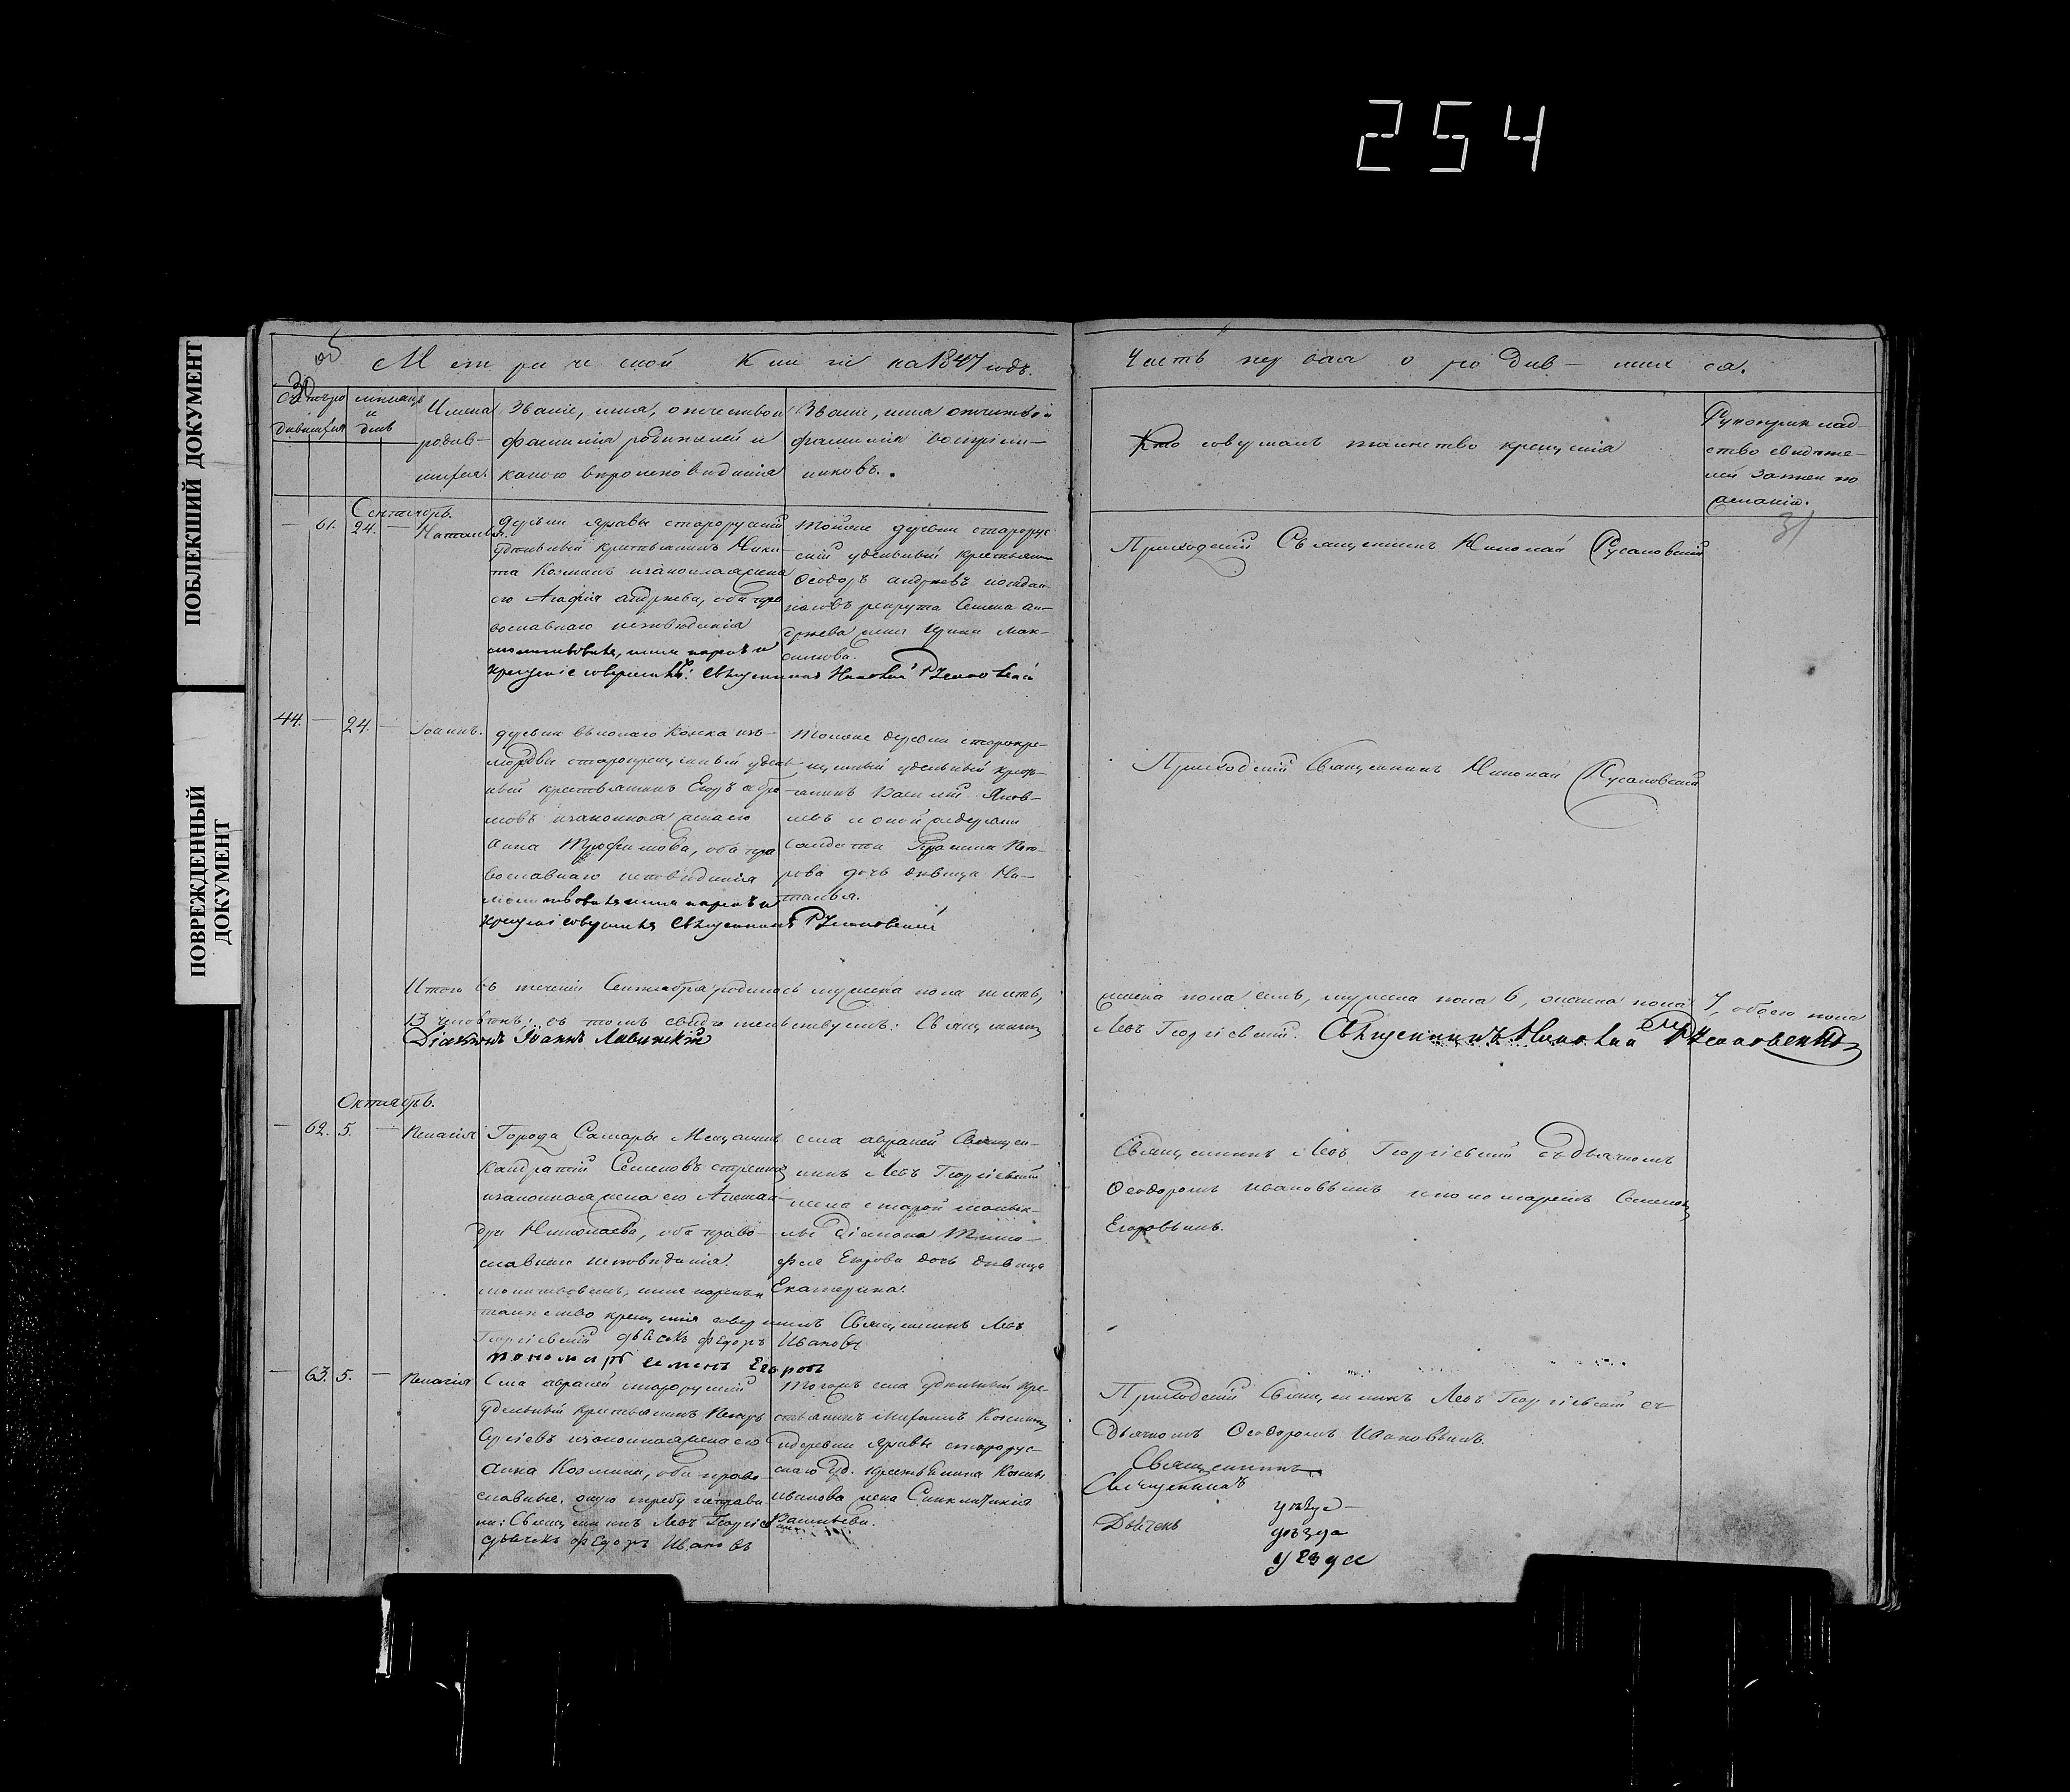 254
ПОБЛЕКШИЙ ДОКУМЕНТ
ПОВРЕЖДЕННЫЙ
ДОКУМЕНТ
30
Метрической Книги на 1847 годъ.
Часть первая о родив-шихся.
мѣсяцъ
и
день
Имена
родив-
шихся.
Званіе, имя, отчество и
фамилія родителей и
какого вѣроисповѣданія
Званіе, имя отчество и
фамилія воспріем-
никовъ.
Кто совершалъ таинство крещенія
Рукоприклад-
ство свидѣте-
лей записи по
желанію.
31
Сентябрь.
61. 24. Наталья.
деревни Яравы старорусский
удѣльный крестьянинъ Ники-
та Козминъ и законная жена
его Агафія андреева, оба пра
вославнаго исповѣданія
молитвовалъ, имя нарекъ и
крещеніе совершилъ: Священникъ Николай Русановскій
Тойже деревни старорус
скій удѣльный крестьянинъ
Ѳеодоръ андреевъ
рекрута Семена ан-
дреева жена Ирина Мак-
симова.
Приходскій Священникъ Николай Русановскій
44. 24. Іоаннъ.
деревни
мордвы старокрещенный удѣль
ный крестьянинъ Егоръ абра
мовъ и законная жена его
Анна Трофимова, оба пра
вославнаго исповѣданія
молитвовалъ имя нарекъ и
крещеніе совершилъ Священникъ Русановскій
Тойже деревни старокре-
щенный удѣльный кресть-
янинъ Василій Яков-
левъ и оной же деревни
солдатки
рова дочь дѣвица На-
талья.
Приходскій Священникъ Николай Русановскій
Итого въ теченіи Сентября родилось мужеска пола шесть,
женска пола семь, мужеска пола 6, женска пола 7, обоего пола
13 человѣкъ: въ томъ свидѣтельствуемъ: Священникъ
Левъ Георгіевскій. Священникъ Николай Русановскій
Діаконъ Іоаннъ Ливинскій
Октябрь.
62. 5. Пелагія
Города Самары Мещанинъ
Кандратій Семеновъ
и законная жена его Алексан
дра Николаева, оба право-
славнаго исповѣданія.
молитвовалъ, имя нарекъ и
таинство крещенія совершилъ Священникъ Левъ
Георгіевскій дьячекъ Федоръ Ивановъ
пономарь Семенъ Егоровъ
села Священ-
никъ Левъ Георгіевскій
діакона Тимо-
фея Егорова дочь дѣвица
Екатерина.
Священникъ Левъ Георгіевскій съ дьячкомъ
Ѳеодоромъ Ивановымъ и пономаремъ Семеномъ
Егоровымъ.
63. 5. Пелагія
Села старорусский
удѣльный крестьянинъ Петръ
Сергіевъ и законная жена его
Анна Козмина, оба право
славные. оную требу исправи
ли: Священникъ Левъ Георгіев
дьячекъ Федоръ Ивановъ
Тогожъ села удѣльный кре-
стьянинъ
и деревни Яравы старорус-
скаго уд. крестьянина Козмы
Иванова жена Синклитикія
Васильева.
Приходскій Священникъ Левъ Георгіевскій съ
Дьячкомъ Ѳеодоромъ Ивановымъ.
Священникъ
Священникъ
Дьячекъ
уѣзда
уѣзда
уезда